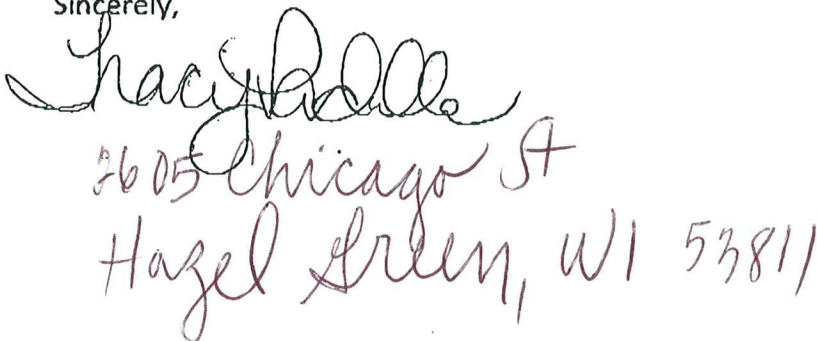 Sincerely,
Tracy Padilla
2605 Chicago St
Hazel Green, WI 53811